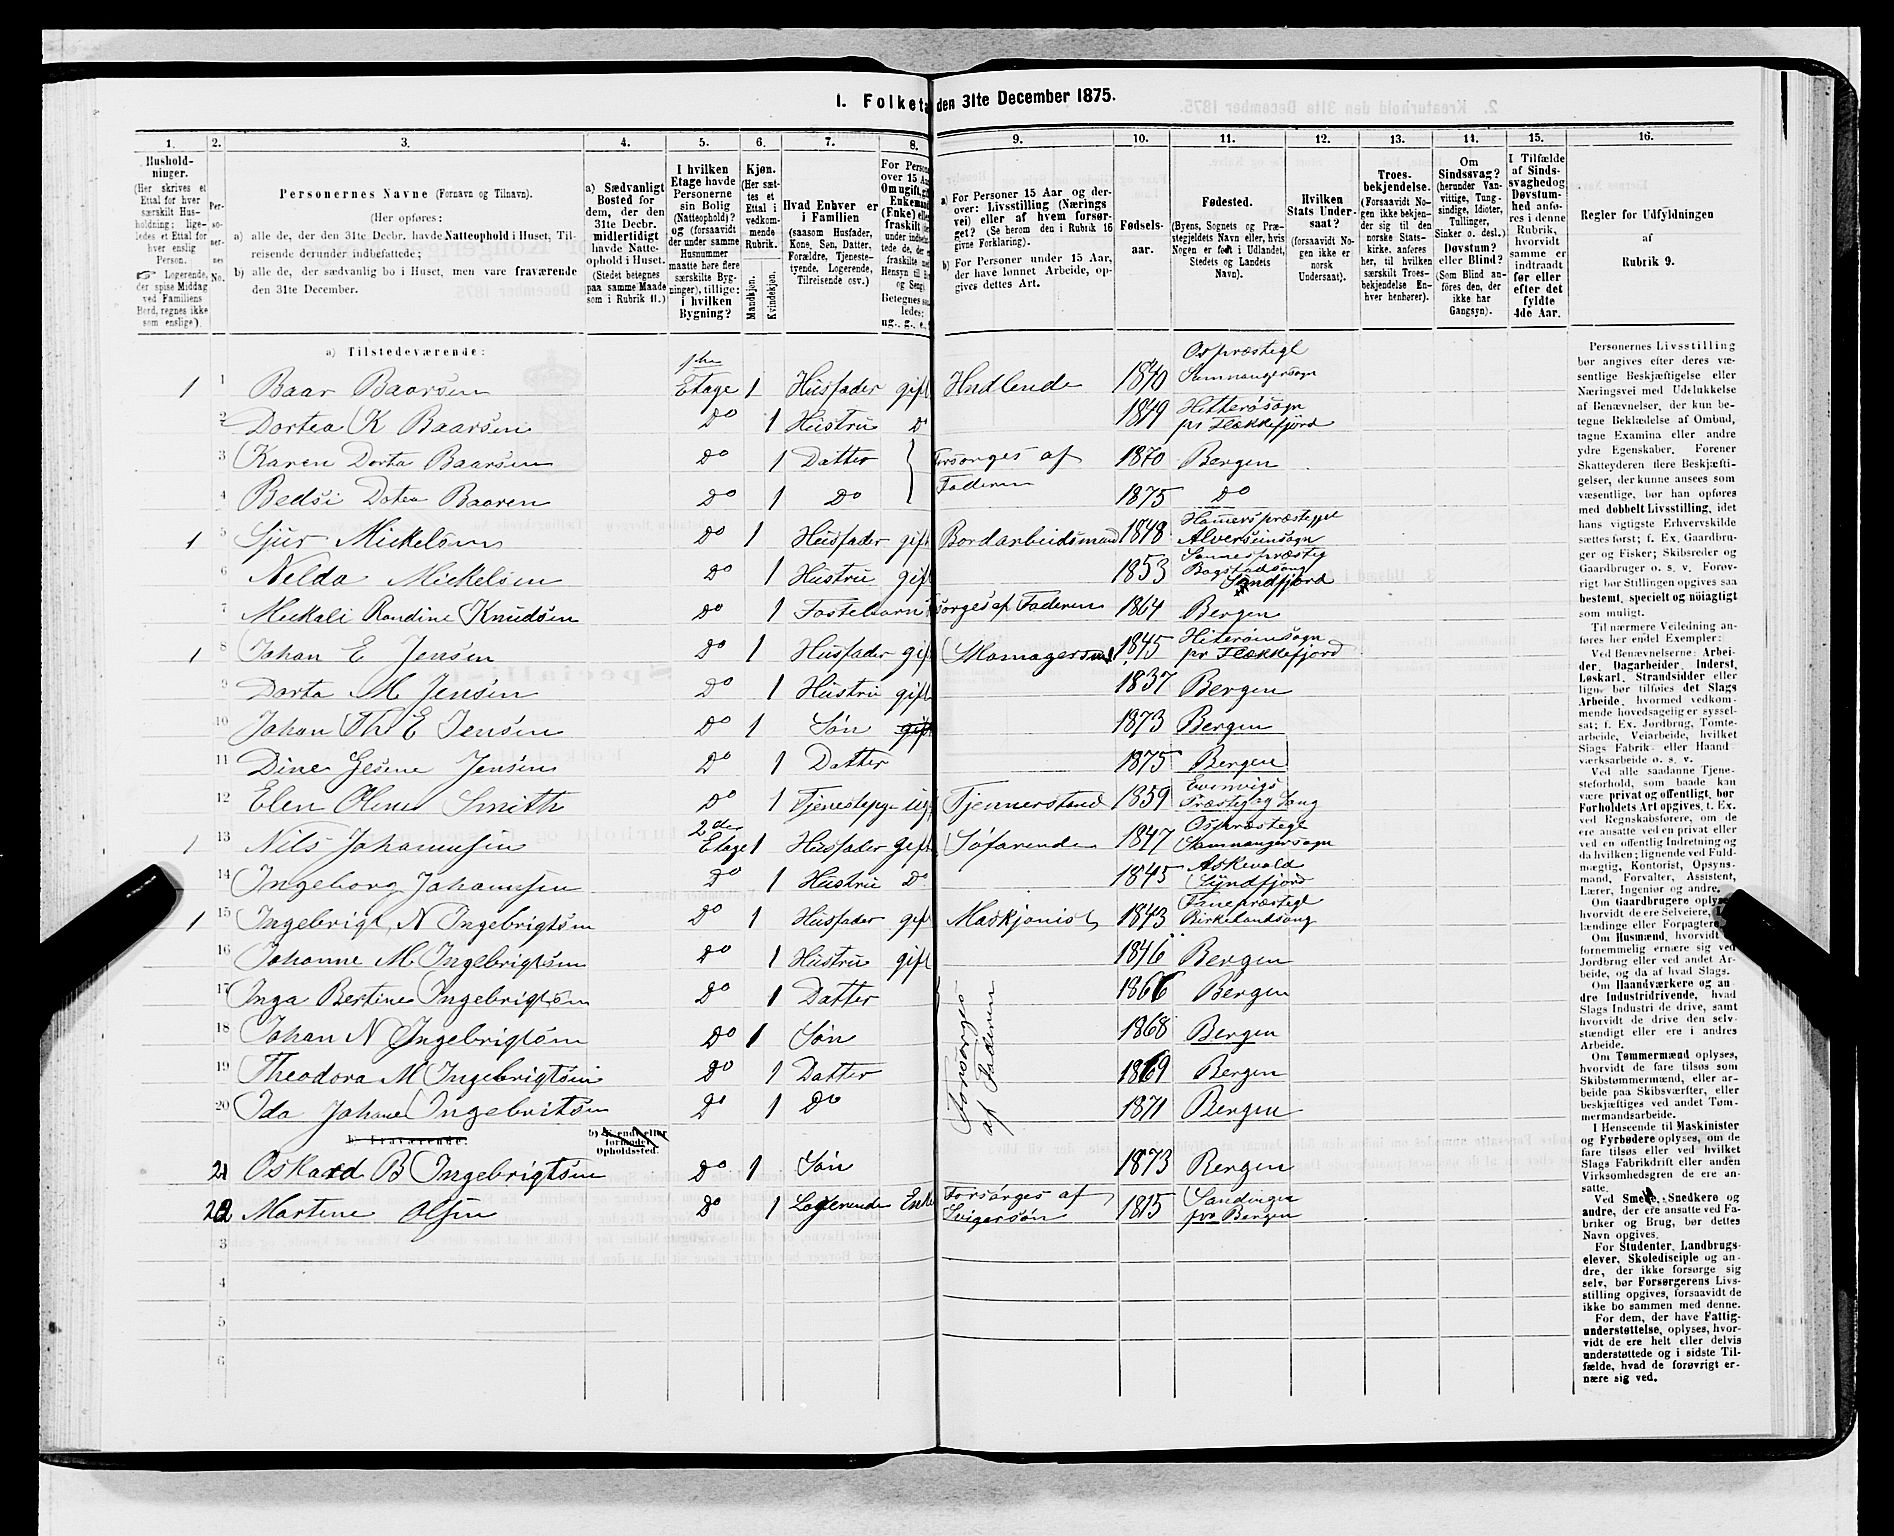 1. Folketa den 31te December 1875.
1. 2. 3. 4. 5. 6. 7. 8. 9. 10. 11. 12. 13. 14. 15. 16.
Hushold-
ninger.
(Her skrives et
Ettal for hver
særskilt Hus-
holdning; lige-
ledes et Ettal for
hver enslig
Person.
Logerende,
der spise Middag
ved Familiens
Bord, regnes ikke
som enslige).
Per-
so-
ner-
nes
No.
Personernes Navne (Fornavn og Tilnavn).
(Her opføres:
a) alle de, der den 31te Decbr. havde Natteophold i Huset, Til-
reisende derunder indbefattede;
b) alle de, der sædvanlig bo i Huset, men vare fraværende
den 31te December.
a) Sædvanligt
Bosted for
dem, der den
31te Decbr.
midlertidigt
havde Natte-
ophold i Huset.
(Stedet betegnes
paa samme Maade
som i Rubrik 11.)
I hvilken
Etage havde
Personerne
sin Bolig
(Natteophold)?
og (forsaavidt
der under samme
Husnummer
maatte høre flere
særskilte Byg-
ninger), tillige:
i hvilken
Bygning?
Kjøn.
(Her sæt-
tes et
Ettal i
vedkom-
mende
Rubrik.
Mandkjøn.
Kvindekjøn.
Hvad Enhver er
i Familien
(saasom Husfader,
Kone, Søn, Datter,
Forældre, Tjeneste-
tyende, Logerende,
Tilreisende osv.)
For Person
over 15 Aa
Om ugift, gi
Enkemand
(Enke) elle
fraskilt
a) For Personer 15 Aar og der-
over: Livsstilling (Nærings
vei) eller af hvem forsør-
get? (Se herom den i Rubrik 16
givne Forklaring).
b) For Personer under 15 Aar,
der have lønnet Arbeide, op-
gives dettes Art.
Fødsels-
aar.
Fødested.
(Byens, Sognets og Præ-
stegjeldets Navn eller, hvis
Nogen er født i Udlandet,
Stedets og Landets
Navn).
Hvilken
Stats Under-
saat?
(forsaavidt No-
gen ikke er
norsk
Undersaat).
Troes-
bekjendelse.
(Forsaavidt No-
gen ikke bekjen-
der sig til den
norske Stats-
kirke, anføres
her, til hvilken
særskilt Troes-
bekjendelse En-
hver henhører).
Om
Sindssvag?
(herunder Van-
vittige, Tung-
sindige, Idioter,
Tullinger,
Sinker o. desl.)
Døvstum?
eller Blind?
(Som Blind an-
føres den, der
ikke har
Gangsyn).
I Tilfælde
af Sinds-
svaghed og
Døvstum-
hed anfø-
res i denne
Rubrik,
hvorvidt
samme er
indtraadt
før eller
efter det
fyldte
4de Aar.
Regler for Udfyldningen
af
Rubrik 9.
a) Tilstedeværende:
1 1 Baar Baarsen 1ste Etage 1 Husfader gift Hndlende 1840 Ospræstegl Samnangersogn
2 Dortea K Baarsen Do 1 Hustru Do 1849 Hitterøsogn pr Flekkefjord
3 Karen Dorta Baarsen Do 1 Datter Forsørges af Faderen 1870 Bergen
4 Bedsi Dotea Baaren Do 1 Do 1875 Do
1 5 Sjur Mickelsen Do 1 Husfader gift Bordarbeidsmand 1848 Hammerspræstegjel Alversunsogn
6 Nelda Mickelsen Do 1 Hustru gift 1853
7 Mickali Randine Knudsen Do 1 Fostebarn sørges af Faderen 1864 Bergen
1 8 Johan E Jensen Do 1 Husfader gift Skomagersvend 1845 Hiterøinsogn pr Flekkefjord
9 Dorta M Jensen Do 1 Hustru gift 1837 Bergen
10 Johan Th E Jensen Do 1 Søn gift 1873 Bergen
11 Dine Gesene Jensen Do 1 Datter 1875 Bergen
12 Elen Oline Smith Do 1 Tjenestepge ug Tjennerstand 1859 Evenvigs Præsteg og Song
1 13 Nils Johannesen 2den Etage 1 Husfader gift Søfarende 1847 Ospræstegl Samnangersogn
14 Ingeborg Johannesen Do 1 Hustru Do 1845 Askevold Syndfjord
1 15 Ingebrigt N Ingebrigtsen Do 1 Husfader gift Maskjonist 1843 Fanepræstegl Birkelandsong
16 Johanne M Ingebrigtsen Do 1 Hustru gift 1846 Bergen
17 Inga Bertine Ingebrigtsen Do 1 Datter Forsørges af Faderen 1866 Bergen
18 Johan N Ingebrigtsen Do 1 Søn 1868 Bergen
19 Theodora M Ingebrigtsen Do 1 Datter 1869 Bergen
20 Ida Johane Ingebritsen Do 1 Do 1871 Bergen
b) Fraværende.
Opholdssted.
21 Oskard B Ingebrigtsen Do 1 Søn 1873 Bergen
22 Martine Olsen Do 1 Logerende Enke Forsørges af Svigersøn 1815 Sandvigen pr Bergen
3
4
5
6
Personernes Livsstilling
bør angives efter deres væ-
sentlige Beskjæftigelse eller
Næringsvei med Udelukkelse
af Benævnelser, der kun be-
tegne Beklædelse af Ombud,
tagne Examina eller andre
ydre Egenskaber. Forener
Skatteyderen flere Beskjæfti-
gelser, der kunne ansees som
væsentlige, bør han opføres
med dobbelt Livsstilling, idet
hans vigtigste Erhvervskilde
sættes først; f. Ex. Gaardbru-
ger og Fisker; Skibsreder og
Gaardbruger o. s. v. Forøv-
rigt bør Stillingen opgives saa
bestemt, specielt og nøiagtigt
som muligt.
Til nærmere Veiledning an-
føres her endel Exempler:
Ved Benævnelserne: Arbei-
der, Dagarbeider, Inderst,
Løskarl, Strandsidder eller
lign. bør tilføies det Slags
Arbeide, hvormed vedkom-
mende hovedsagelig er syssel-
sat; f. Ex. Jordbrug, Tomte-
arbeide, Veiarbeide, hvilket
Slags Fabrik- eller Haand
værksarbeide o. s. v.
Ved alle saadanne Tjene-
steforhold, som baade kan
være privat og offentligt, bør
Forholdets Art opgives, t. Ex.
ved Regnskabsførere, om de
ere ansatte ved en privat eller
ved en offentlig Indretning og
da hvilken; lignende ved Fuld-
mægtig, Kontorist, Opsyns-
mand, Forvalter, Assistent,
Lærer, Ingeniør og andre.
Om Gaardbrugere oplyses,
hvorvidt de ere Selveiere,
lændinge eller Forpagtere.
Om Husmænd, hvorvidt
fornemmelig ernære sig ved
Jordbrug eller ved andet Ar-
beide, og da af hvad Slags.
Om Haandværkere og an
dre Industridrivende, hvad
Slags Industri de drive, samt
hvorvidt de drive den selv-
stændigt eller ere i andres
Arbeide.
Om Tømmermænd oplyses,
hvorvidt de fare tilsøs som
Skibstømmermænd, eller ar-
beide paa Skibsværfter, eller
beskjæftiges ved andet Tøm-
mermandsarbeide.
I Henseende til Maskinister
og Fyrbødere oplyses, om de
fare tilsøs eller ved hvilket
Slags Fabrikdrift eller anden
Virksomhedsgren de ere an-
satte.
Ved Smede, Snedkere og
andre, der ere ansatte ved Fa-
briker og Brug, bør dettes
Navn opgives.
For Studenter, Landbrugs-
elever, Skoledisciple og an-
dre, der ikke forsørge sig
selv, bør Forsørgerens Livs-
stilling opgives, forsaavidt de
ikke bo sammen med denne.
For dem, der have Fattig-
understøttelse, oplyses, hvor-
vidt de ere helt eller delvis
understøttede og i sidste Til-
fælde, hvad de forøvrigt er-
nære sig ved.